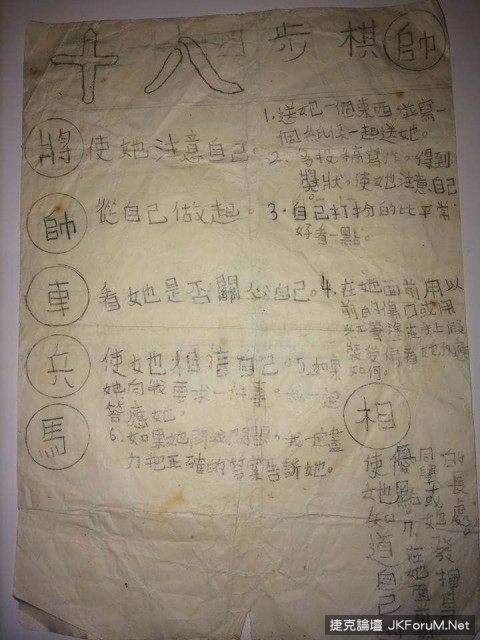 十八步棋 帥
將 使她注意自己。
1.送她一個東西,並寫一
個紙條一起送她。
2.多投稿寫作,得到
獎狀,使她注意自己。
帥 從自己做起。
3.自己打扮的比平常
好看一點。
車 看她是否關心自己。
4.在她面前用以
前的傷口或用
兵 使她相信自己。
5.如果
她向我要求一件事。我一定
答應她。
馬
6.如果她問我問題,我一定盡
力把正確的答案告訴她。
相
使她知道自己
優點。7.在她面前
同學或她發揮自
的長處
捷克論壇 JKForuM.Net